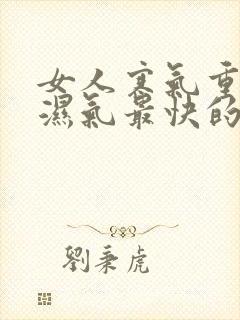 女人寒氣重
濕氣最快的
劉秉虎